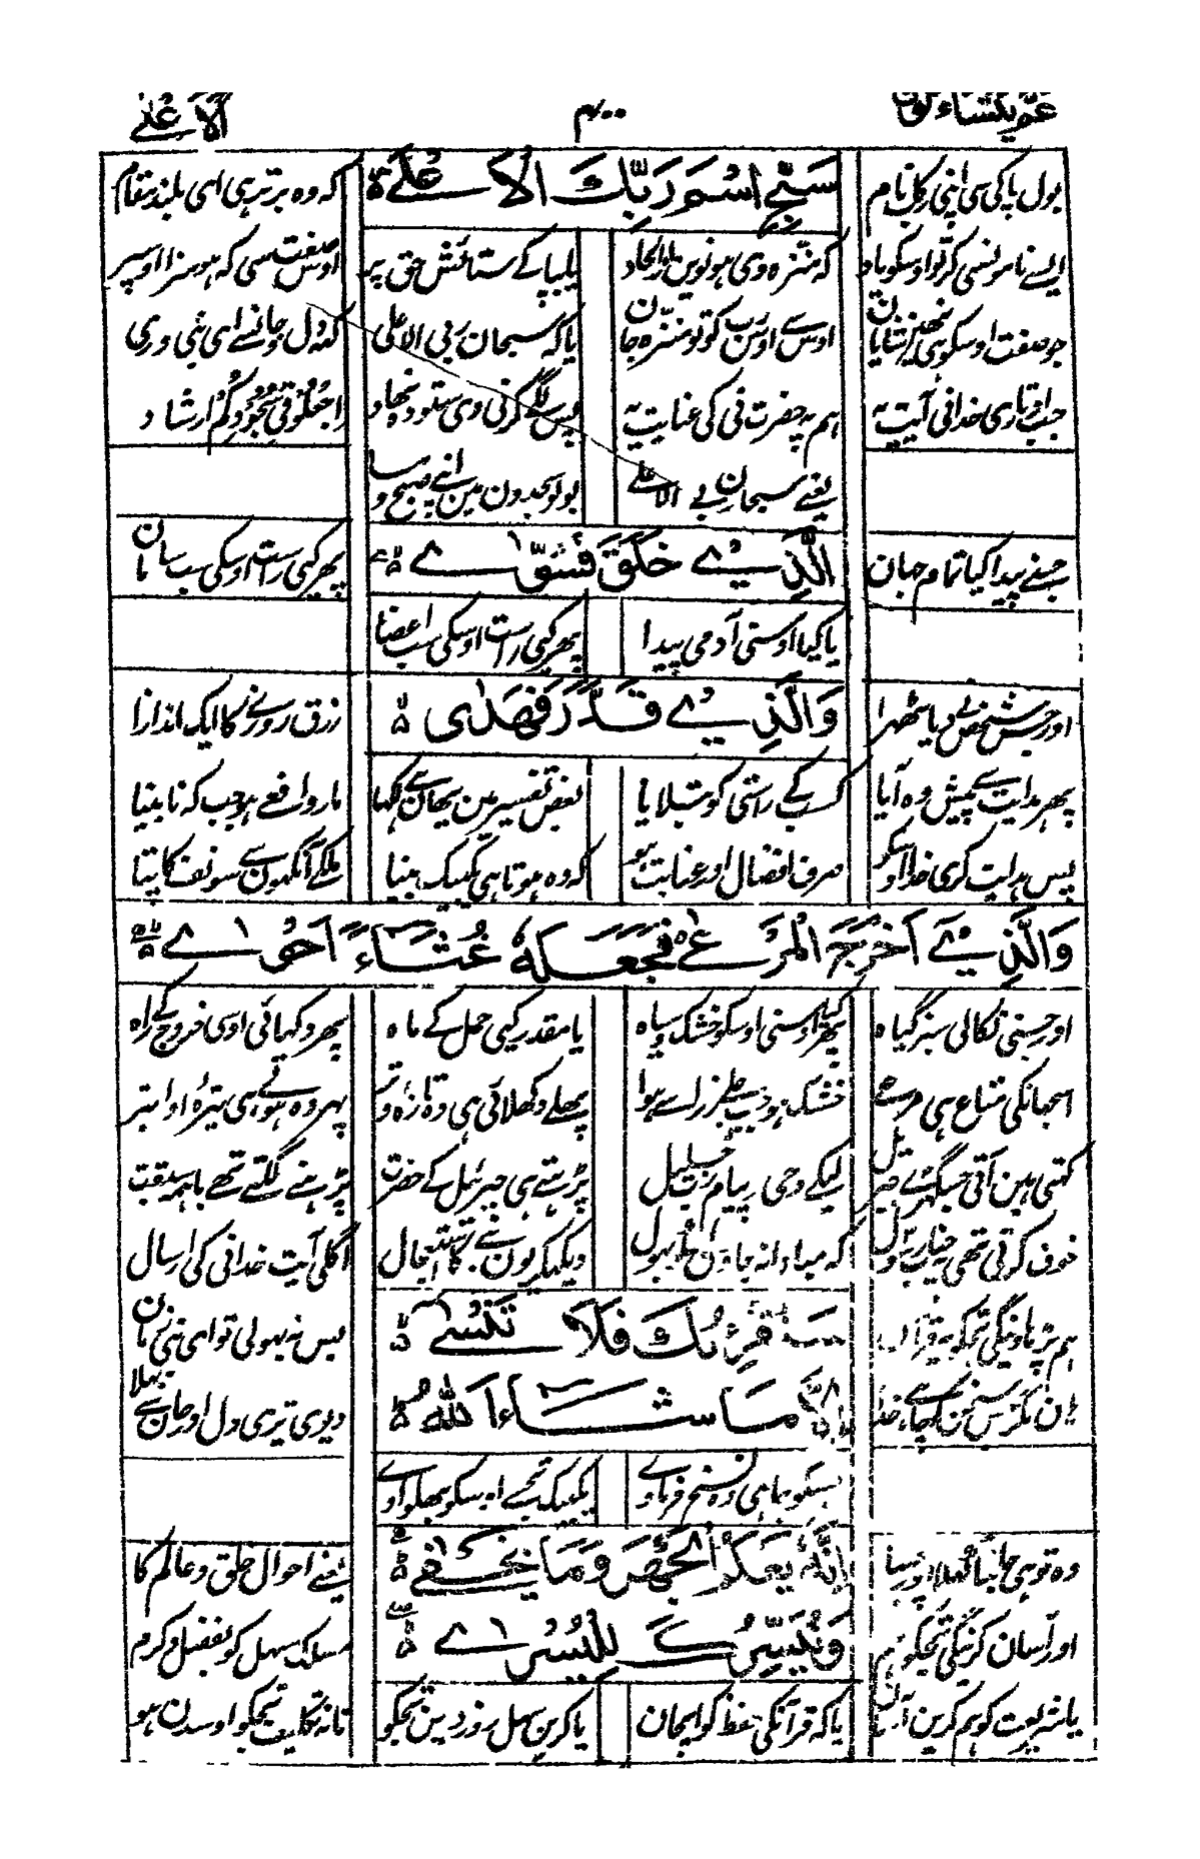 عم یتساءلون ۴۰۰ الاعلے
بول پاکی سی اپنی رب کا نام سَبِّحِ اسْمَ رَبِّكَ الْاَعْلَے کہ وہ برتر ہی اسی بلند مقام
ایسے نامونسی کر تو اوسکو یاد کہ منزہ وی ہوئین الحاد ستائش حق پر اوس صفت سی کہ ہو سزا اوسپر
جو صفت اوسکو نہین شایان اوس سے اوس رب کو تو منزہ جان یا کہ سبحان ربی الاعلی کہہ دل و جانسے ای نبی وری
جب اوتاری خدانی آیت یہ ہم پہ حضرت نی کی عنایت یہ پس لگے کرنی وی ستودہ نہاد اجعلوا فی سجودکم ارشاد
یعنے سبحان ربی الاعلے بولو سجدون مین اپنے صبح و مسا
جسنے پیدا کیا تمام جہان الَّذِيْ خَلَقَ فَسَوّٰے پھر کیی راست اوسکی سب سامان
یا کیا اوسنی آدمی پیدا پھر کیی راست اوسکی سب اعضا
اور جس شخص نے دیا ٹھہرا وَالَّذِيْ قَدَّرَ فَهَدٰی رزق روزی کا ایک اندازا
پھر ہدایت سے پیش وہ آیا کسب کے راستی کو بتلایا بعض تفسیر مین یہان سے کہا مار و افعے ہو جب کہ نابینا
پس ہدایت کری خدا اوسکو صرف افضال اور عنایت ہو کہ وہ ہوتا ہی یکبیک بینا ملکے آنکھون سے سونف کا پتا
وَالَّذِيْ اَخْرَجَ الْمَرْعٰے فَجَعَلَهٗ غُثَاءً اَحْوٰے
اور جسنی نکالی سبز گیاہ پھر کیا اوسنی اوسکو خشک و سیاہ یا مقدر کیی حمل کے ماہ پھر دکھائی اوسی خروج کے راہ
اسجہانکی متاع ہی مرعے خشک ہو جب طرز اے ہوا پہلے دکھلائی ہی وہ تازہ و تر پہر وہ ہوتے ہی تیرہ او ابتر
کہتی ہین آتی جسگھڑی جبریل لیکے وحی پیام رب جلیل پڑہتے ہی جبرئیل کے حضرت پڑہنے لگتے تھے باہمہ سبقت
خوف کرتی تھی جناب رسول کہ مبادا نہ جاؤن اسکو بہول دیکھکر یون نبی کا استعجال اگلی آیت خدانی کی ارسال
ہم پڑہاوینگی تجکو یہ قرآن سَنُقْرِئُكَ فَلَا تَنْسٰے پس نہ بہولی تو ای نبی زمان
ہان مگر جس سخن کو چاہے خدا اِلَّا مَا شَاءَ اللّٰهُ دیوی تیری دل او جان سے بہلا
جسکو چاہی وہ نسخ فرماوے یکبیک تجسے اوسکو بھلواوے
وہ تو ہی جانتا کھلا اور چھپا اِنَّهٗ يَعْلَمُ الْجَهْرَ وَمَا يَخْفٰے یعنے احوال خلق و عالم کا
اور آسان کرینگی تجکو ہم وَنُيَسِّرُكَ لِلْيُسْرٰے مسلک سہل کو بفضل و کرم
یا شریعت کو ہم کرین آسان یا کہ قرآنکی حفظ کو ایجان یا کرین سہل روز دین تجکو تا نہ تکلیف تجکو اوسدن ہو